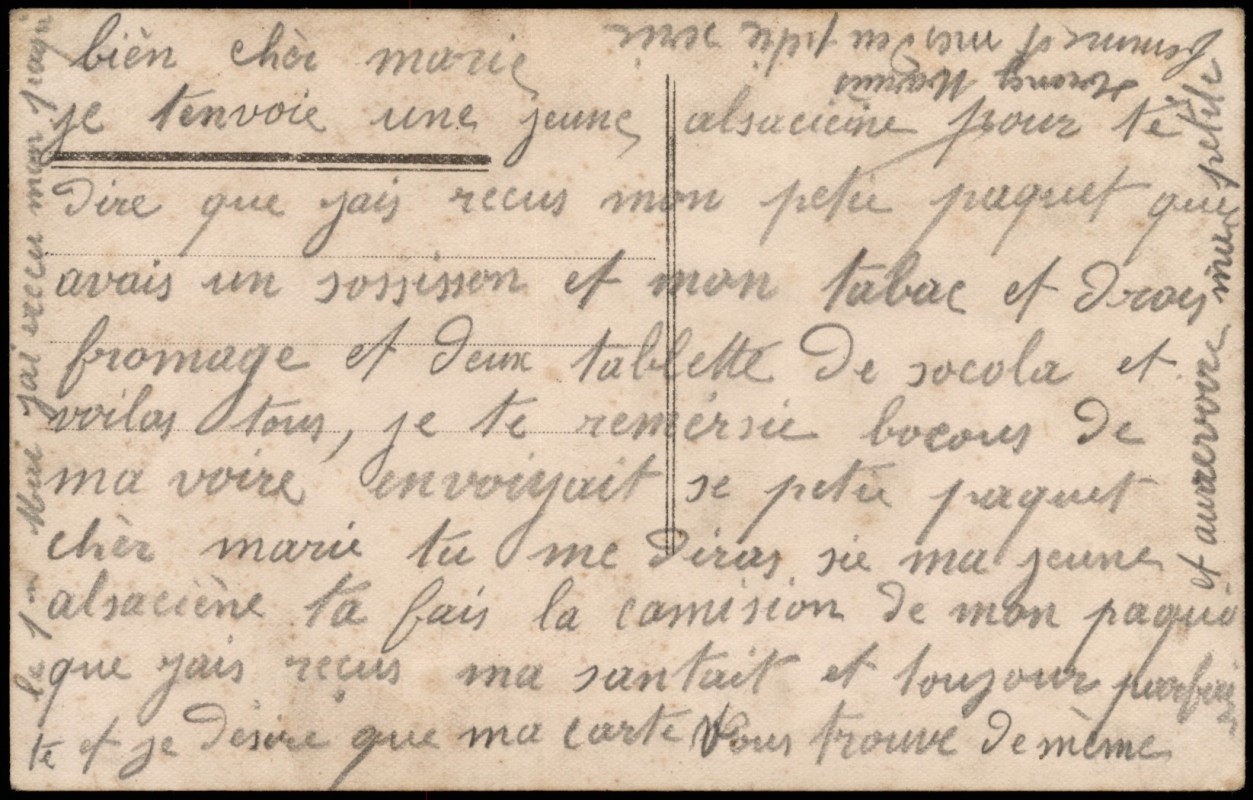 bièn chèr marie
je tenvoie une jeune alsacième pour te
dire que jais recus mon petie paquet que
avais un sossisson et mon tabac et drois
fromage et deux tablette de socola et
voilas tous, je te remérsie bocous de
ma voire envoiyait se petie paquet
chèr marie tu me diras sie ma jeune
alsaciène ta fais la comision de mon paquè
que jais recus ma santait et toujour parfai
te et je désire que ma carte vous trouve de mème
et aurervoire ma petite
femme et mes petie
le 1er Mai jai recu mon paqu